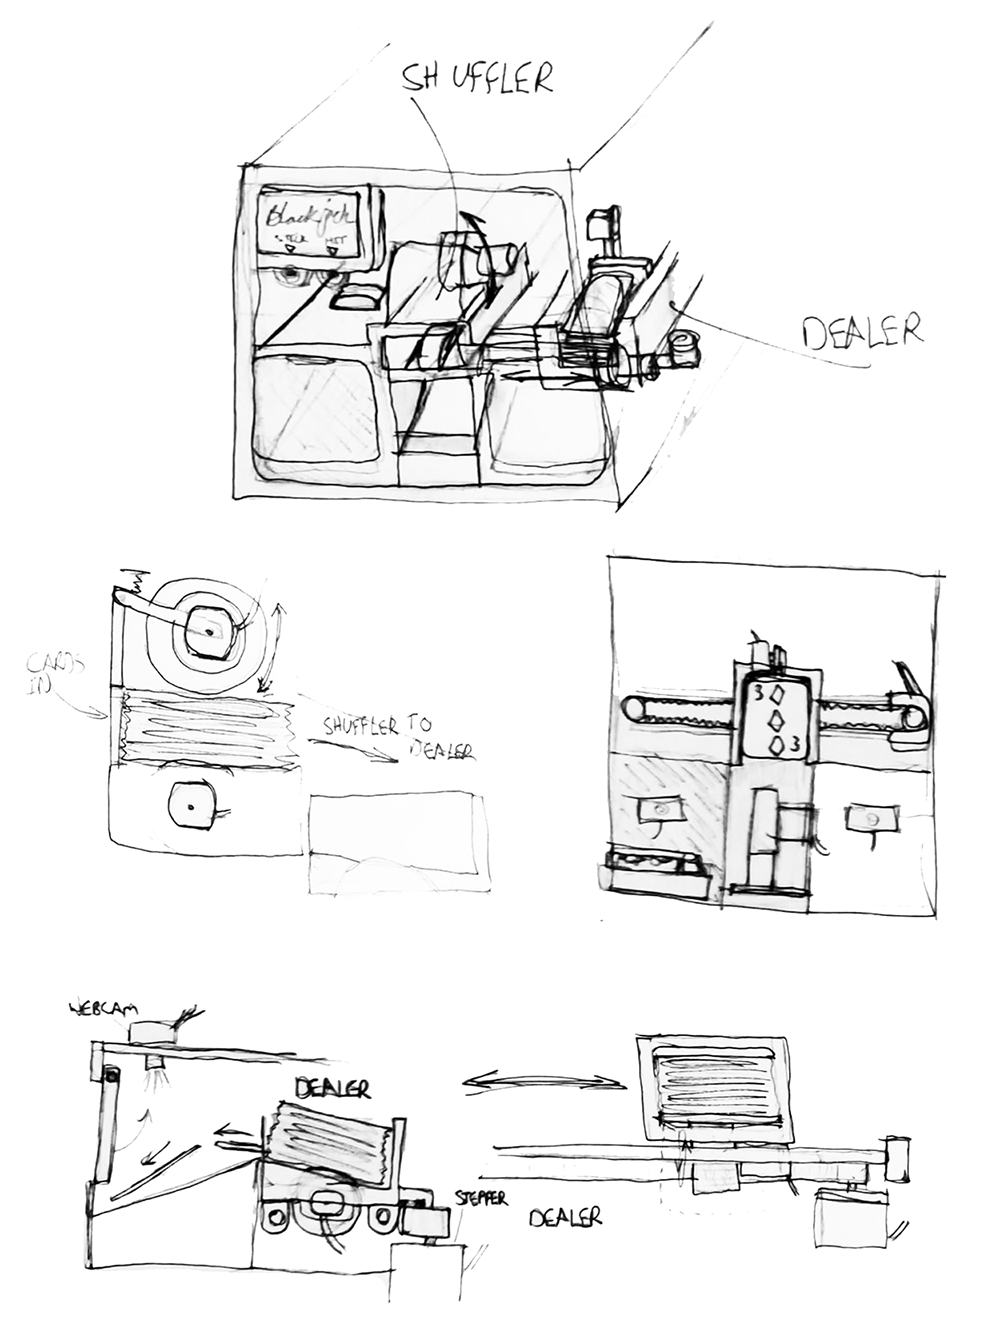 SHUFFLER
Blackjack
STICK HIT
DEALER
CARDS
IN
SHUFFLER TO
DEALER
3
3
WEBCAM
DEALER
STEPPER
DEALER